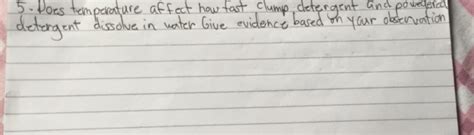 5. Does temperature affect how fast clump detergent and powdered
detergent dissolve in water Give evidence based on your observation